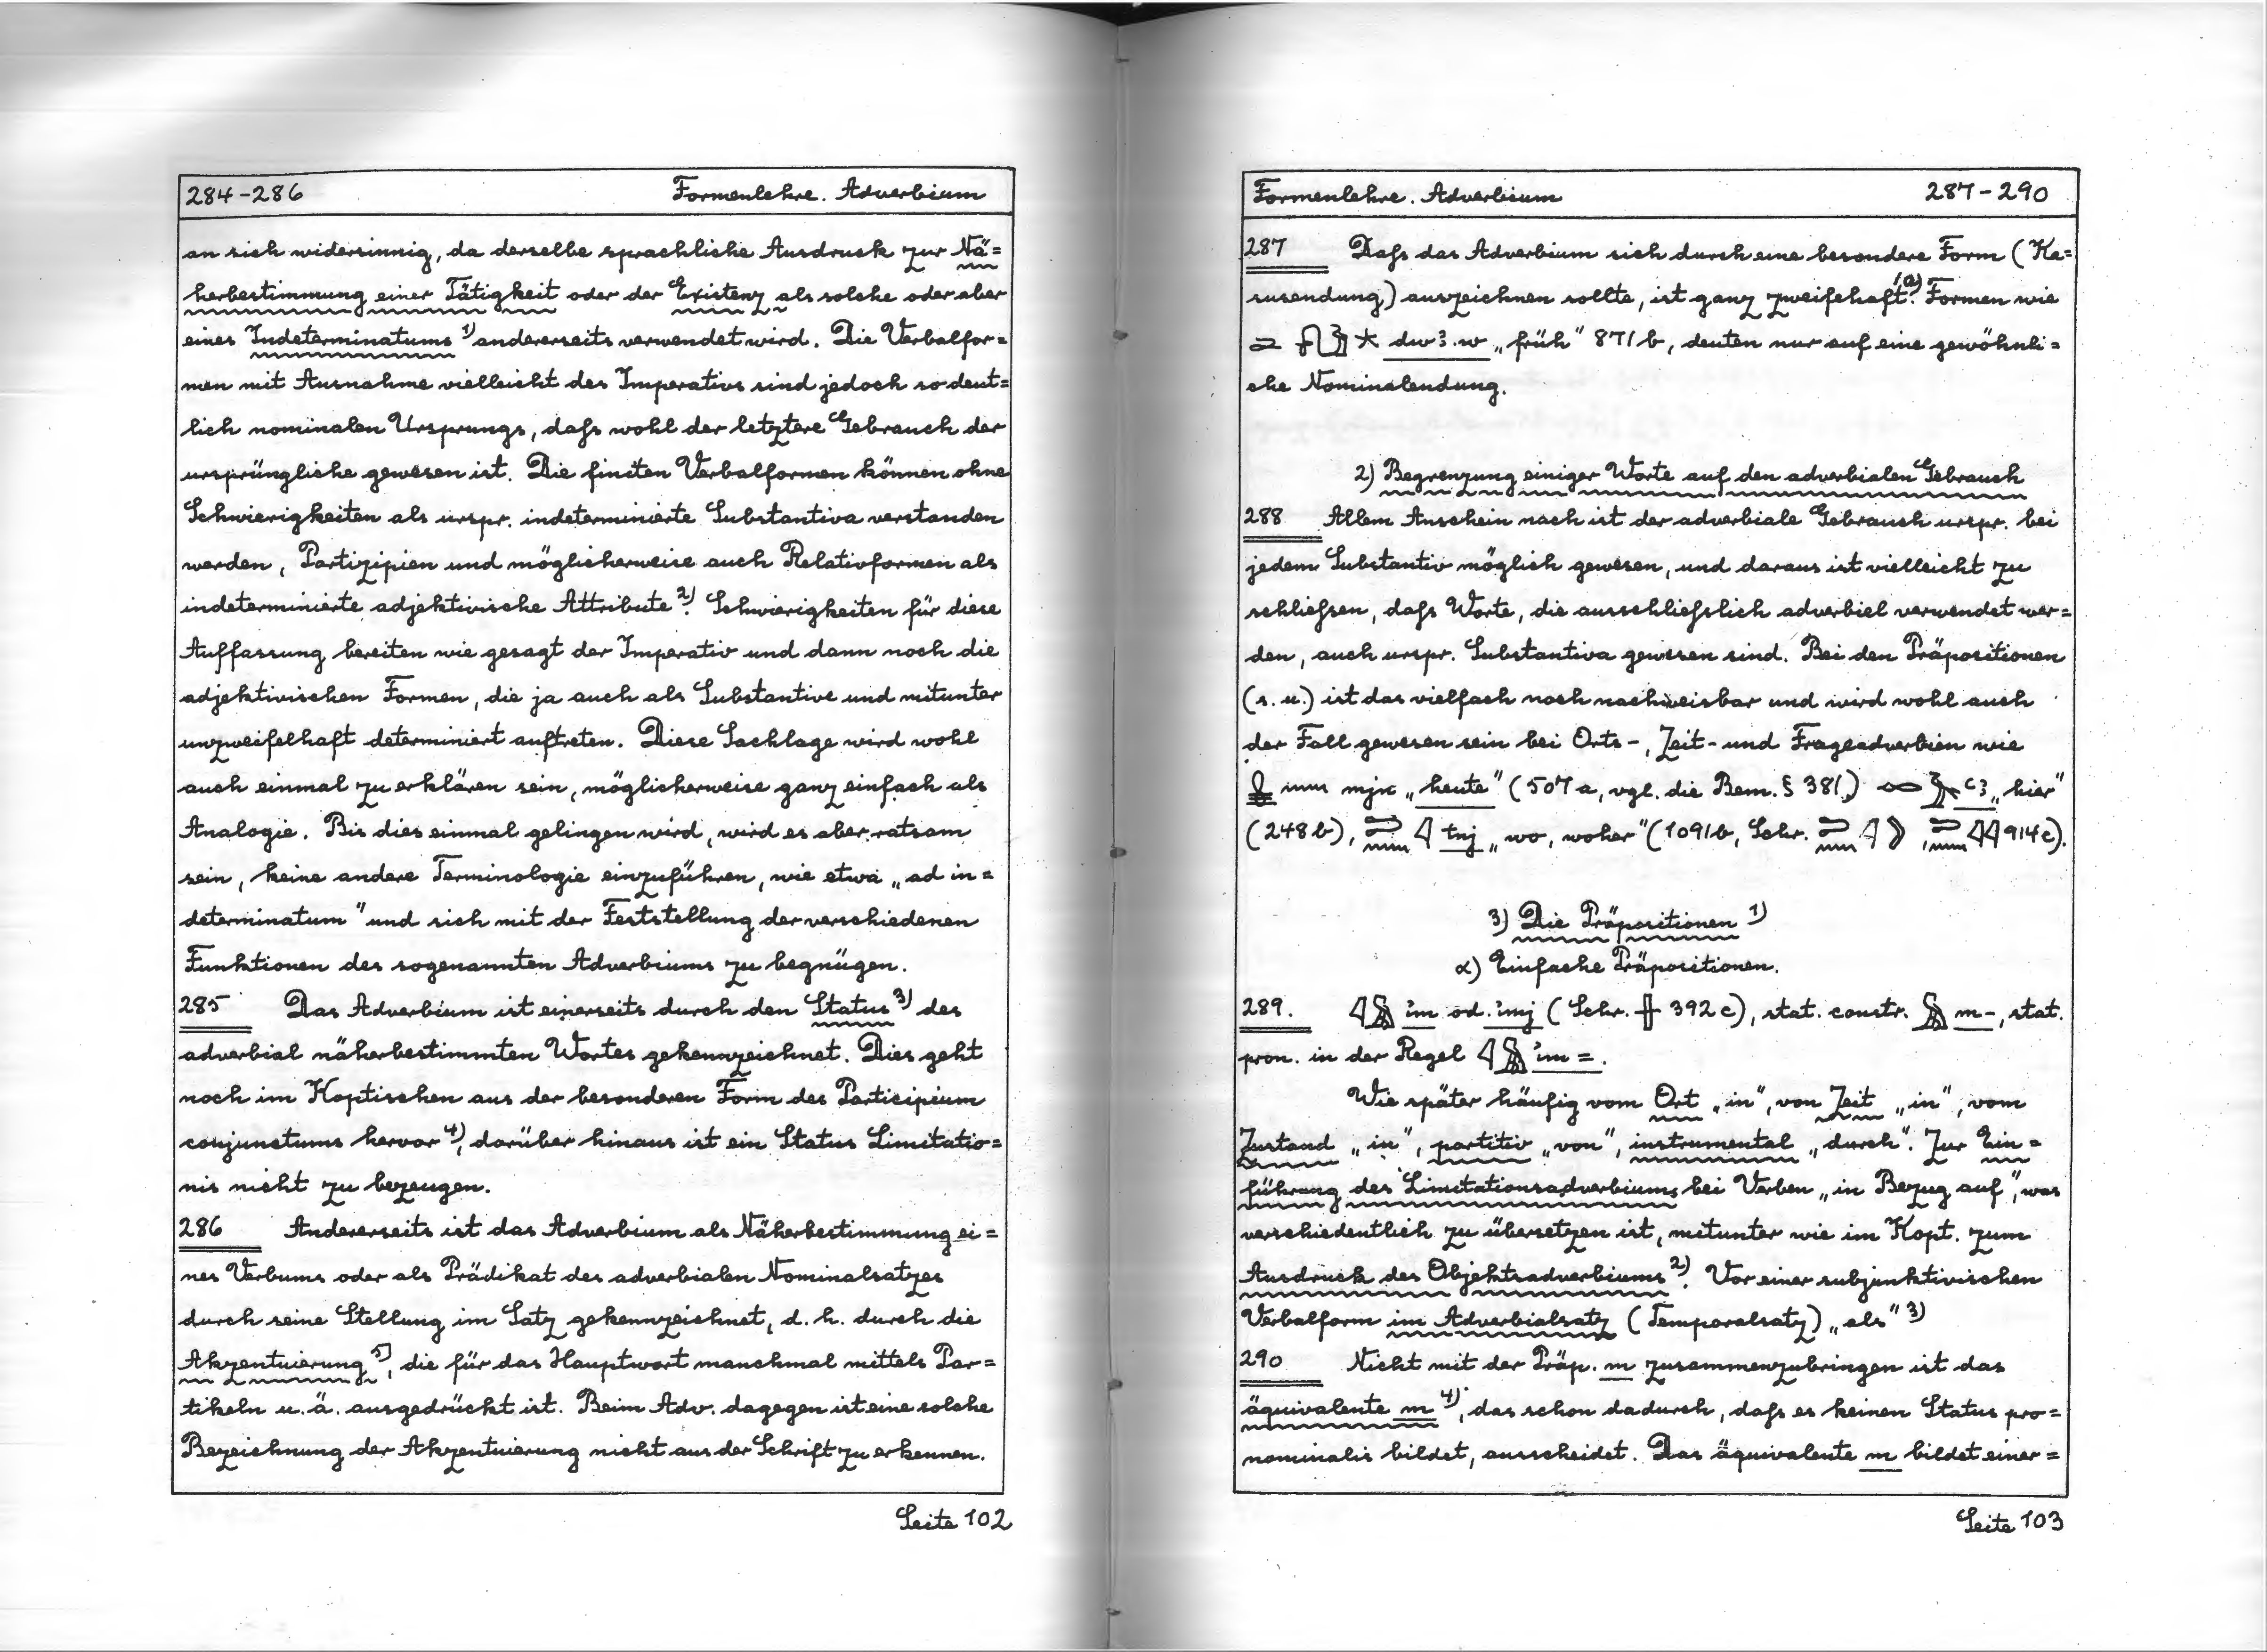 284-286 Formenlehre. Adverbium
an sich widersinnig, da derselbe sprachliche Ausdruck zur Nä=
herbestimmung einer Tätigkeit oder der Existenz als solche oder aber
eines Indeterminatums 1) andererseits verwendet wird. Die Verbalfor=
men mit Ausnahme vielleicht des Imperativs sind jedoch so deut=
lich nominalen Ursprungs, daſs wohl der letztere Gebrauch der
ursprüngliche gewesen ist. Die finiten Verbalformen können ohne
Schwierigkeiten als urspr. indeterminierte Substantiva verstanden
werden, Partizipien und möglicherweise auch Relativformen als
indeterminierte adjektivische Attribute 2). Schwierigkeiten für diese
Auffassung bereiten wie gesagt der Imperativ und dann noch die
adjektivischen Formen, die ja auch als Substantive und mitunter
unzweifelhaft determiniert auftreten. Diese Sachlage wird wohl
auch einmal zu erklären sein, möglicherweise ganz einfach als
Analogie. Bis dies einmal gelingen wird, wird es aber ratsam
sein, keine andere Terminologie einzuführen, wie etwa „ad in=
determinatum" und sich mit der Feststellung der verschiedenen
Funktionen des sogenannten Adverbiums zu begnügen.
285 Das Adverbium ist einerseits durch den Status 3) des
adverbial näherbestimmten Wortes gekennzeichnet. Dies geht
noch im Koptischen aus der besonderen Form des Participium
conjunctums hervor 4), darüber hinaus ist ein Status Limitatio=
nis nicht zu bezeugen.
286 Andererseits ist das Adverbium als Näherbestimmung ei=
nes Verbums oder als Prädikat des adverbialen Nominalsatzes
durch seine Stellung im Satz gekennzeichnet, d. h. durch die
Akzentuierung 5), die für das Hauptwort manchmal mittels Par=
tikeln u. ä. ausgedrückt ist. Beim Adv. dagegen ist eine solche
Bezeichnung der Akzentuierung nicht aus der Schrift zu erkennen.
Seite 102
Formenlehre. Adverbium 287-290
287 Daſs das Adverbium sich durch eine besondere Form (Ka=
susendung) auszeichnen sollte, ist ganz zweifehaft 1a). Formen wie
dwꜣ.w „früh" 871b, deuten nur auf eine gewöhnli=
che Nominalendung.
2) Begrenzung einiger Worte auf den adverbialen Gebrauch
288 Allem Anschein nach ist der adverbiale Gebrauch urspr. bei
jedem Substantiv möglich gewesen, und daraus ist vielleicht zu
schlieſsen, daſs Worte, die ausschlieſslich adverbiel verwendet wer=
den, auch urspr. Substantiva gewesen sind. Bei den Präpositionen
(s. u.) ist das vielfach noch nachweisbar und wird wohl auch
der Fall gewesen sein bei Orts-, Zeit- und Frageadverbien wie
mjn „heute" (507a, vgl. die Bem. § 381.) ꜥꜣ „hier"
(248b), tnj „wo, woher" (1091b, Schr. , 914c).
3) Die Präpositionen 1)
α) Einfache Präpositionen.
289. ỉm od. ỉmj (Schr. 392c), stat. constr. m-, stat.
pron. in der Regel ỉm=.
Wie später häufig vom Ort „in", von Zeit „in", vom
Zustand „in", partitiv „von", instrumental „durch". Zur Ein=
führung des Limitationsadverbiums bei Verben „in Bezug auf", was
verschiedentlich zu übersetzen ist, mitunter wie im Kopt. zum
Ausdruck des Objektsadverbiums 2). Vor einer subjunktivischen
Verbalform im Adverbialsatz (Temporalsatz) „als" 3)
290 Nicht mit der Präp. m zusammenzubringen ist das
äquivalente m 4), das schon dadurch, daſs es keinen Status pro=
nominalis bildet, ausscheidet. Das äquivalente m bildet einer=
Seite 103